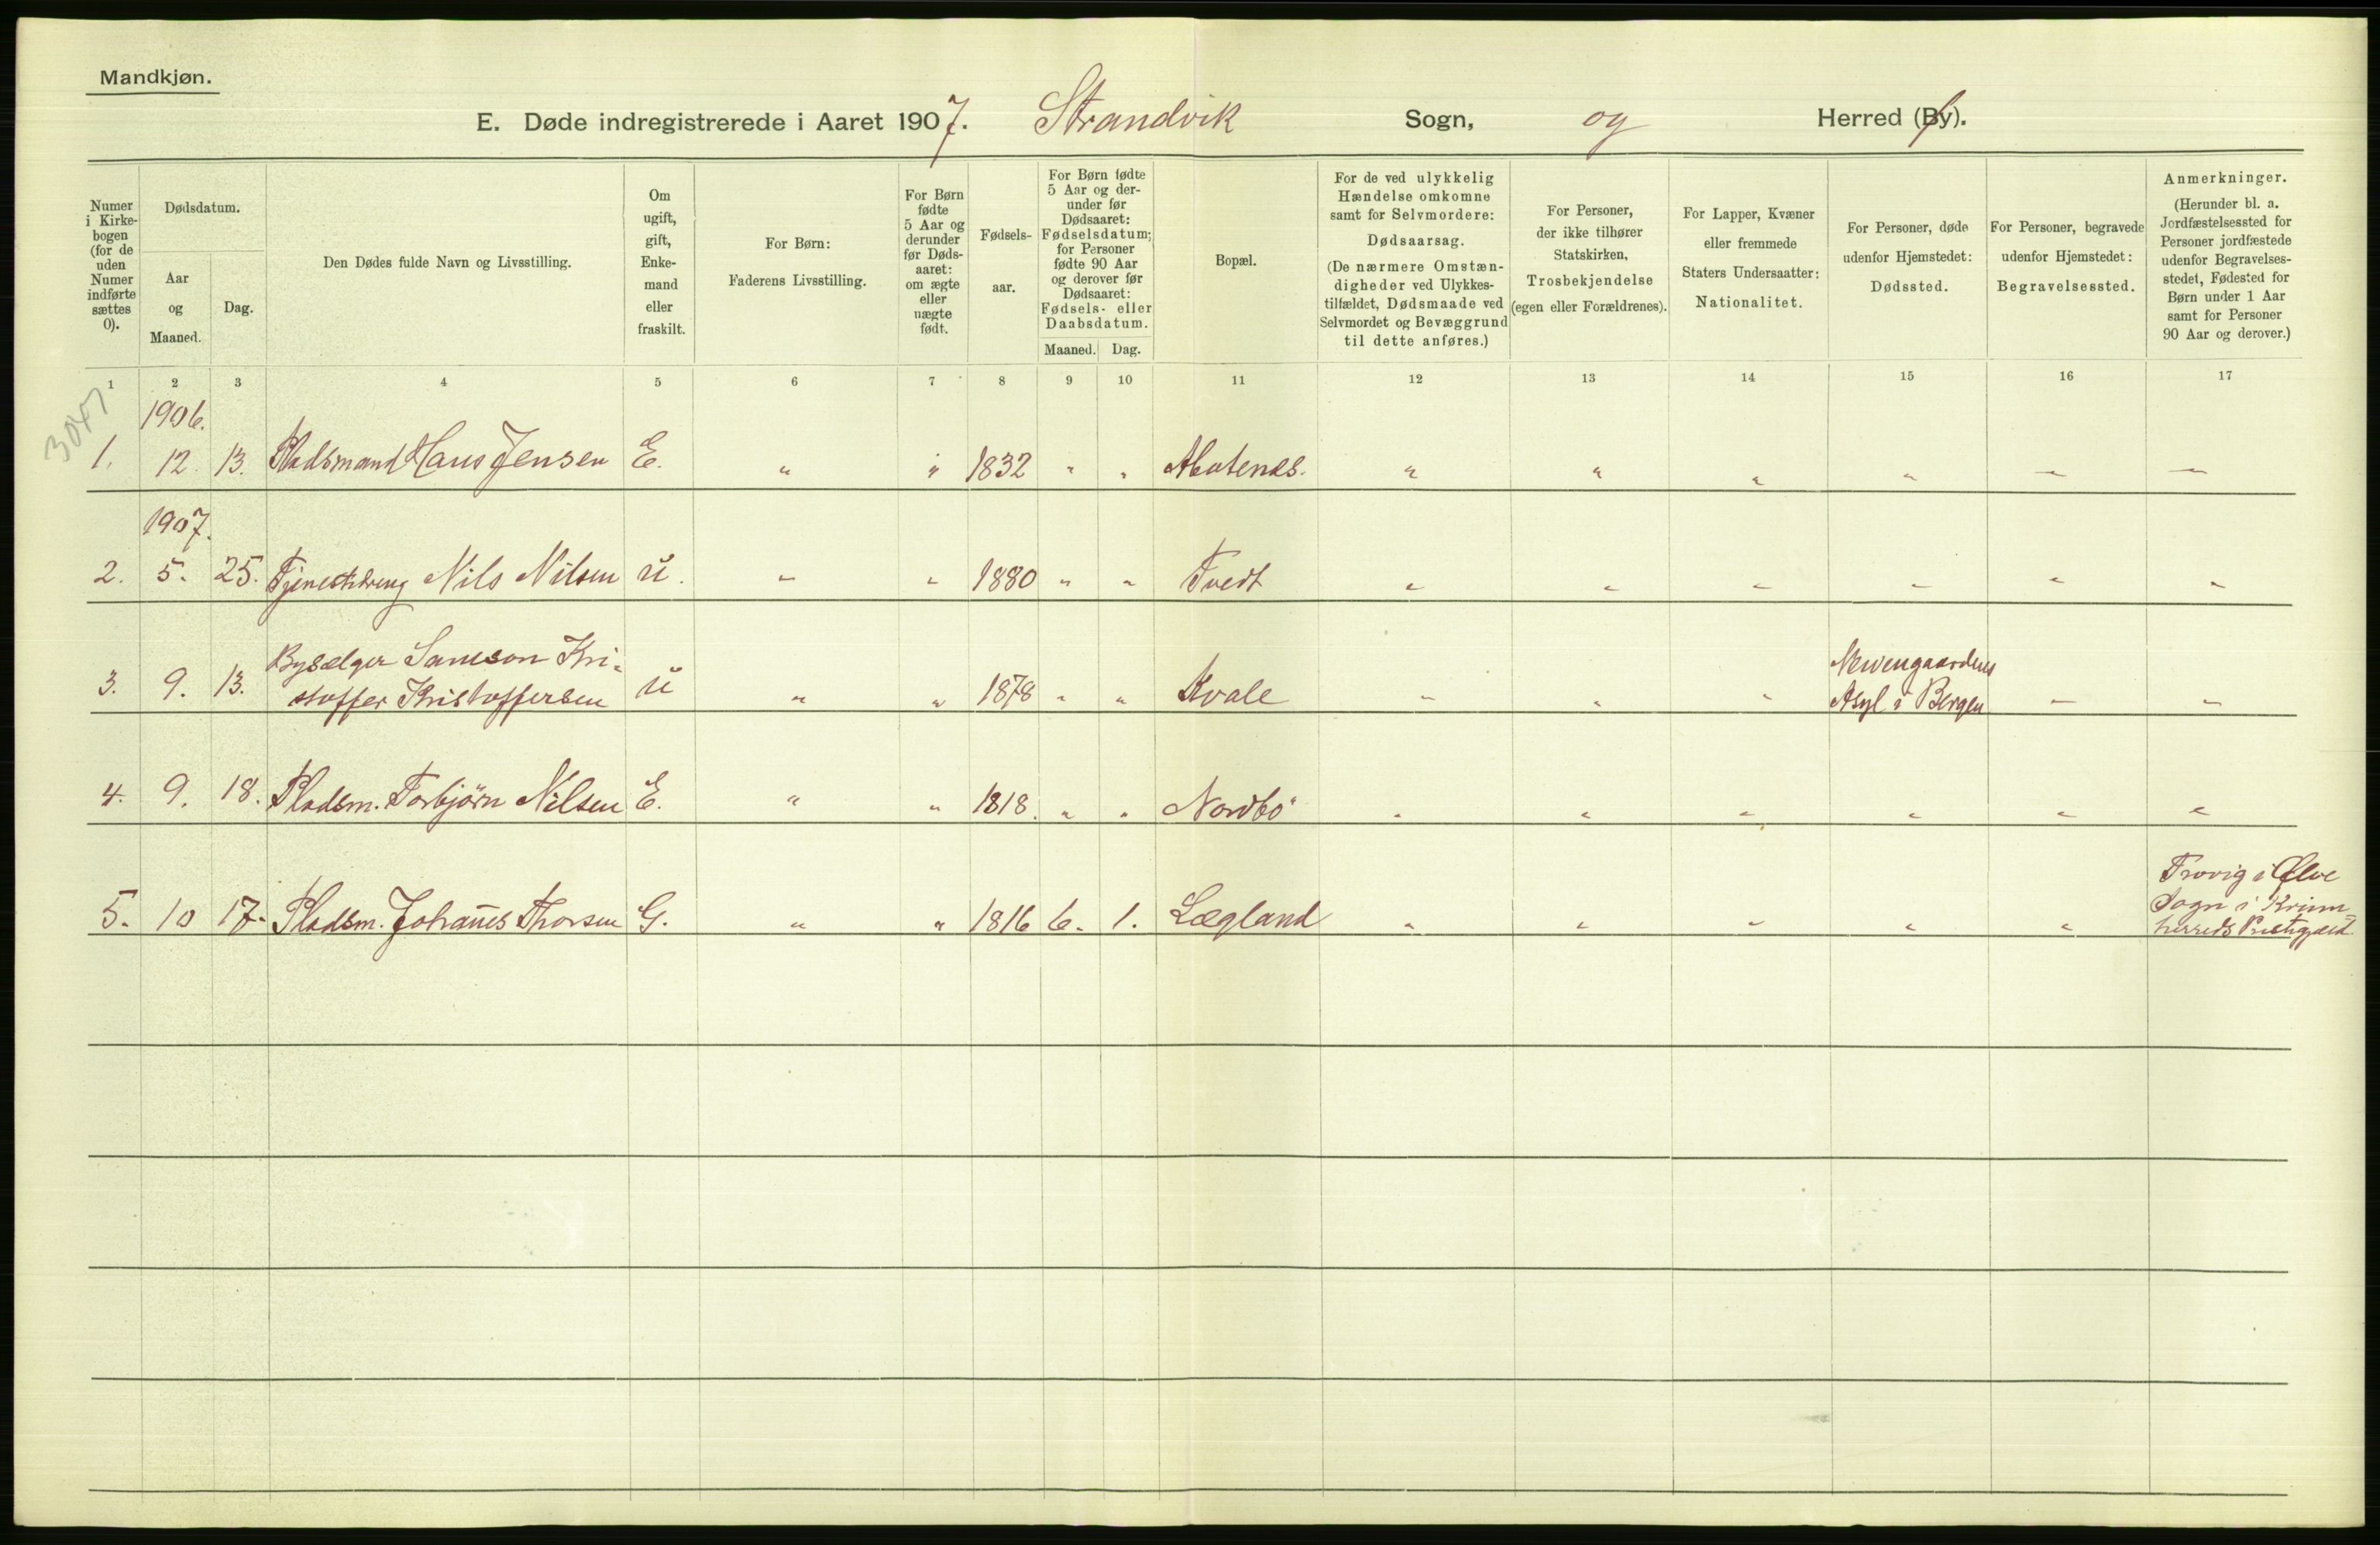 Mandkjøn.
E. Døde indregistrerede i Aaret 1907. Strandvik Sogn, og Herred (By).
Numer i Kirke-bogen (for de uden Numer indførte sættes 0).
Dødsdatum.
Aar og Maaned.
Dag.
Den Dødes fulde Navn og Livsstilling.
Om ugift, gift, Enke-mand eller fraskilt.
For Børn:
Faderens Livsstilling.
For Børn fødte 5 Aar og derunder før Døds-aaret: om ægte eller uægte født.
Fødsels-aar.
For Børn fødte 5 Aar og der-under før Dødsaaret: Fødselsdatum; for Personer fødte 90 Aar og derover før Dødsaaret: Fødsels- eller Daabsdatum.
Maaned. Dag.
Bopæl.
For de ved ulykkelig Hændelse omkomne samt for Selvmordere: Dødsaarsag.
(De nærmere Omstæn-digheder ved Ulykkes-tilfældet, Dødsmaade ved Selvmordet og Bevæggrund til dette anføres.)
For Personer, der ikke tilhører Statskirken, Trosbekjendelse (egen eller Forældrenes).
For Lapper, Kvæner eller fremmede Staters Undersaatter: Nationalitet.
For Personer, døde udenfor Hjemstedet: Dødssted.
For Personer, begravede udenfor Hjemstedet: Begravelsessted.
Anmerkninger.
(Herunder bl. a. Jordfæstelsessted for Personer jordfæstede udenfor Begravelses-stedet, Fødested for Børn under 1 Aar samt for Personer 90 Aar og derover.)
1 2 3 4 5 6 7 8 9 10 11 12 13 14 15 16 17
3047
1906.
1. 12. 13. Pladsmand Hans Jensen E. " " 1832 " " " " " " — —
1907.
2. 5. 25. Tjenestdreng Nils Nilsen u. " " 1880 " " Tvedt " " " " " "
3. 9. 13. Bysælger Samson Kri-
stoffer Kristoffersen u " " 1878 " " Kvale " " "
Asyl i Bergen — "
4. 9. 18. Pladsm. Torbjörn Nilsen E. " " 1818. " " Nordbö " " " " " "
5. 10 17. Pladsm. Johannes Thorsen G. " " 1816 6. 1. Lægland " " " " "
i Ølve
Sogn i Kvinn-
herreds Prestegjeld.